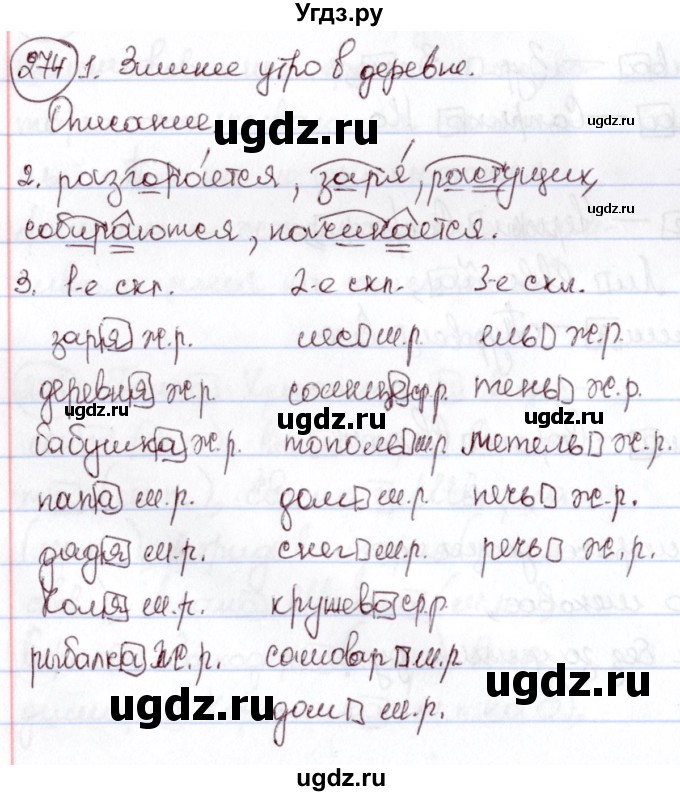 Угдз.ру
274 1. Зимнее утро в деревне.
ugdz.ru
Описание.
ugdz.ru ugdz.ru
2. разгорается, заря, растущих,
собираются, начинается.
ugdz.ru ugdz.ru
3. 1-е скл. 2-е скл. 3-е скл.
заря ж.р. лес м.р. ель ж.р.
деревня ж.р. солнце ср.р. тень ж.р.
ugdz.ru ugdz.ru ugdz.ru
бабушка ж.р. тополь м.р. метель ж.р.
папа м.р. дом м.р. печь ж.р.
дядя м.р. снег м.р. речь ж.р.
ugdz.ru ugdz.ru
Коля м.р. кружево ср.р.
рыбалка ж.р. самовар м.р
ugdz.ru ugdz.ru ugdz.ru
дом м.р.
ugdz.ru